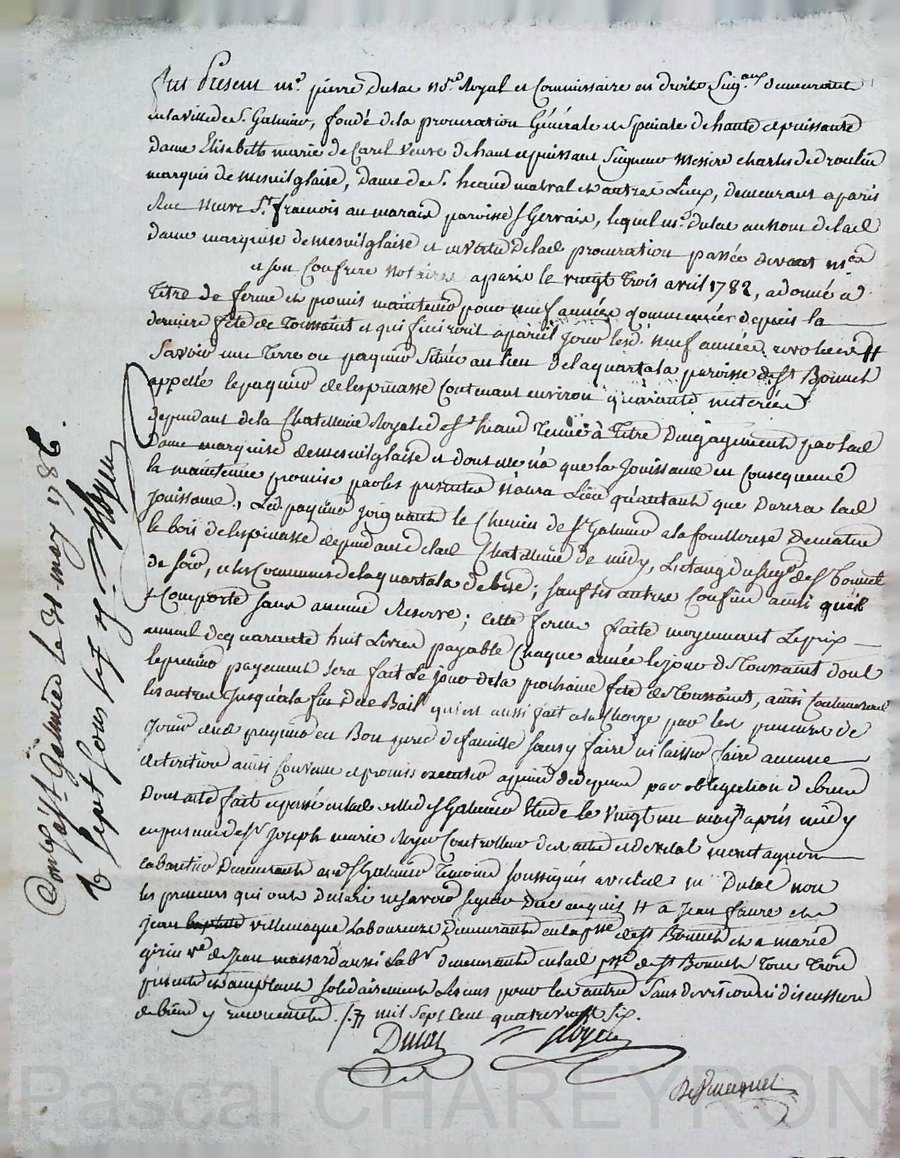 fut Present m.e pierre dulac no.re Royal et Commissaire en droits Seig.aux demeurant
en la ville de S. Galmier, fondé de la procuration Générale et Speciale de haute et puissante
dame Elisabeth marie de Carel veuve de haut et puissant Seigneur messire charles de droulin
marquis de mesnilglaise, dame de S. heand malval et autres Lieux, demeurant a paris
Rue neuve S.t francois au marais paroisse S Gervais, lequel m.e dulac au nom de lad
dame marquise de mesnilglaise et en vertu de lad procuration passée devant m.es
et son Confrere notaires a paris le vingt trois avril 1782, a donné a
Titre de ferme et promis maintenir pour neuf années Commencées depuis la
derniere fête de Toussaint et qui finiront a pareil jour lesd. neuf années revolues #
Savoir une Terre ou paquier Située au lieu de laquartala paroisse de S.t Bonnet
appellé le paquier de lespinasse Contenant environ quarante meterées
dependant de la Chatellenie Royale de S.t heand Tenue à Titre d'engagement par lad
Dame marquise de mesnilglaise et dont elle n'a que la Jouissance en Consequence
la maintenue promise par les presentes n'aura Lieu qu'autant que Durera lad
Jouissance, Led. paquier joignant le Chemin de S.t Galmier a la fouillouse de matin
le bois de lespinasse dependant de lad Chatellenie de midy, L'etang du seig.r de S.t Bonnet
de soir, et les Communes de laquartala de bise; sauf ses autres Confins ainsi quil
se Comporte sans aucune Reserve; cette ferme faite moyennant Le prix
annuel de quarante huit Livres payable Chaque année le jour de Toussaint dont
le premier payement sera fait Le jour de la prochaine fête de Toussaint, ainsi Continuant
les autres Jusqu'a la fin Du Bail qui est aussi fait a la Charge par les preneurs de
Jouir dud paquier en Bon pere de famille sans y faire ni laisser faire aucune
deterioration ainsi Convenu et promis executer a peine de depens par obligation de biens
Dont acte fait et passé en lad. ville de S Galmier Etude le vingt un may après midy
en presence de S.r Joseph marie Royer Controlleur des actes et de vidal montagnon
cabaretier Demeurants aud S Galmier Temoins Soussignés avec led. m.e Dulac non
les preneurs qui ont Declaré ne savoir signer De ce enquis # a Jean faure et a
Jean villemagne Laboureurs Demeurants en la p.sse de S.t Bonnet et a marie
girin v.e de Jean massard aussi Lab.r demeurante en lad p.sse de S.t Bonnet Tous Trois
presents et acceptants solidairement Les uns pour les autres Sans division ni discussion
de biens y renonceants. mil Sept Cent quatre vingt Six.
Dulac Royer
Controllé a S.t Galmier le 31 may 1786.
R. Sept Sous six d. Royer